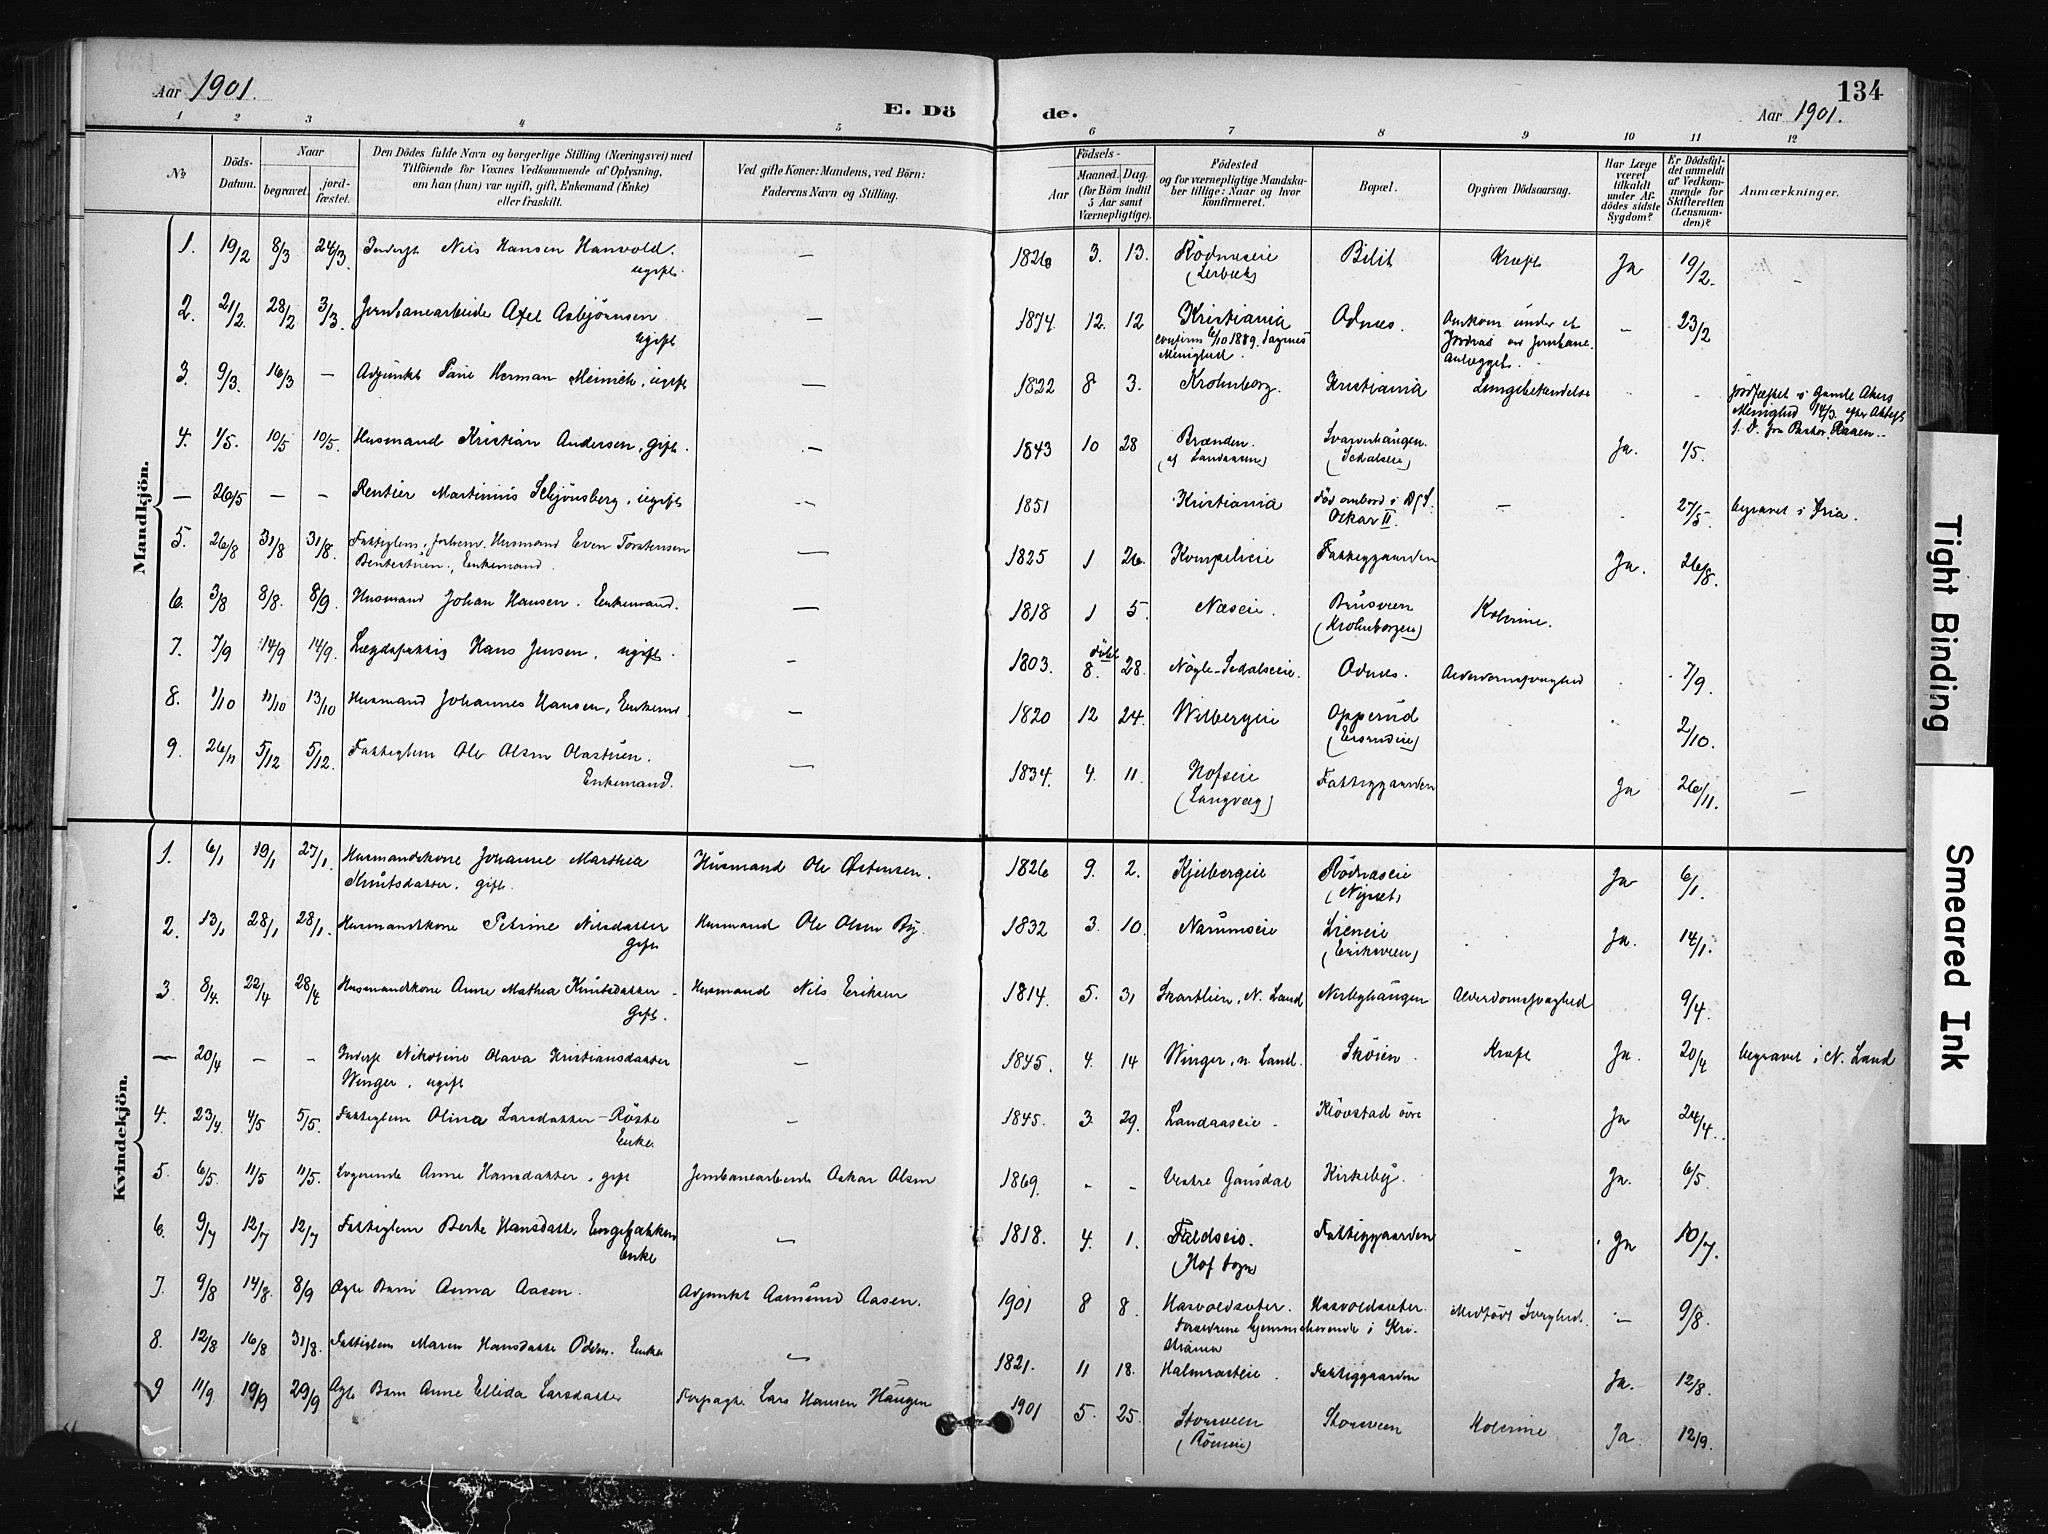 Aar 1901.
E. Dö
de.
134
Aar 1901.
1 2 3 4 5 6 7 8 9 10 11 12
No
Döds-Datum.
Naar
begravet.
jord-fæstet.
Den Dödes fulde Navn og borgerlige Stilling (Næringsvei) med
Tilföiende for Voxnes Vedkommende af Oplysning,
om han (hun) var ugift, gift, Enkemand (Enke)
eller fraskilt.
Ved gifte Koner: Mandens, ved Börn:
Faderens Navn og Stilling.
Födsels-
Aar
Maaned. Dag.
(for Börn indtil
5 Aar samt
Værnepligtige).
Födested
og for værnepligtige Mandska-
ber tillige: Naar og hvor
konfirmeret.
Bopæl.
Opgiven Dödsaarsag.
Har Læge
været
tilkaldt
under Af-
dödes sidste
Sygdom?
Er Dödsfal-
det anmeldt
af Vedkom-
mende for
Skifteretten
(Lensman-
den)?
Anmærkninger.
Mandkjön.
1. 19/2 8/3 24/3. Inderst Nils Hansen Hanvold. ugift. — 1826 3. 13. Rödnæseie Bilit Kræft Ja 19/2. —
2. 21/2. 28/2 3/3. Jernbanearbeider Axel Asbjörnsen Ugift — 1874 12. 12 Kristiania confirm 6/10 1889. Menighed. Odnes. Omkom under et Jordras ved Jernbane-Anlægget. — 23/2
3. 9/3. 16/3 — Adjunkt Herman Meinich, ugift — 1822 8 3. Krohnborg. Kristiania Lungebetændelse Jordfæstet i Gamle Akers Menighed 14/3. efter
4. 1/5. 10/5 10/5. Husmand Kristian Andersen, gift. — 1843 10 28 Brænden. (af Landaasen) Svarverhaugen. Ja. 1/5.
— 26/5 — — Rentier Martinius Schjönsberg, ugift — 1851 Kristiania Död ombord i D/S. Oskar II. — 27/5 begravet i Kria.
5. 26/8 31/8 31/8. Fattiglem, Husmand Even Torstensen Enkemand. — 1825 1 26. Fattiggaarden Ja. 26/8.
6. 3/8 8/8. 8/9. Husmand Johan Hansen. Enkemand. — 1818 1 5. Næseie. (Krohnborgeie) Kolerine.
7. 7/9 14/9 14/9. Lægdsfattig Hans Jensen, ugift. — 1803. 8. 28. Odnes. Alderdomssvaghed 7/9.
8. 1/10 11/10 13/10 Husmand Johannes Hansen, Enkemd. — 1820 12 24. Wilbergeie Opperud 2/10.
9. 26/11 5/12 5/12. Fattiglem Ole Olsen Olastuen. Enkemand. — 1834. 4. 11. Hofseie Fattiggaarden Ja 26/11. —
Kvindekjön.
1. 6/1 19/1 27/1. Husmandskone Johanne Marthea Knutsdatter. gift. Husmand Ole Østensen. 1826 9. 2. Kjelbergeie Rödnæseie Ja 6/1.
2. 13/1 28/1 28/1. Husmandskone Petrine Nilsdatter Gift Husmand Ole Olsen By. 1832 3. 10. Narumseie Lieneie (Eriksveen) Ja. 14/1.
3. 8/4. 22/4 28/4 Husmandskone Anne Mathea Knutsdatter Gift. Husmand Nils Eriksen 1814. 5. 31 Skartlien, N. Land Nerbyhaugen Alderdomssvaghed 9/4.
— 20/4 — — Inderst Nikoline Olava Kristiansdatter Winger, ugift — 1845. 4. 14 Winger, n. Land. Sköien. Kræft Ja. 20/4 begravet i N. Land
4. 23/4. 4/5 5/5. Fattiglem Olina Larsdatter-Röste Enke — 1845. 3. 29. Landaaseie Klövstad övre Ja 24/4.
5. 6/5. 11/5 11/5. Logerende Anne Hansdatter, gift Jernbanearbeider Oskar Olsen 1869. - - Vestre Gausdal Kirkeby. Ja. 6/5.
6. 9/7 12/7 12/7 Fattiglem Berte Hansdatter Engebakken Enke — 1818. 4. 1. Faldseie. (Hof Sogn) Fattiggaarden - Ja 10/7.
7. 9/8 14/8. 8/9 Ægte Barn Anna Aasen. Adjunkt Aamund Aasen. 1901 8 8. Hasvoldsæter. Forældrene hjemmehörende i Kristiania Hasvoldsæter. Medfödt Svaghed. — 9/8.
8. 12/8 16/8 31/8. Fattiglem Maren Hansdatter Odden. Enke — 1821. 11 18. Halmrasteie. Fattiggaarden Ja. 12/8.
9 11/9 19/9 29/9 Ægte Barn Anne Ellida Larsdatter Forpagter Lars Hansen Haugen 1901 5. 25. Storsveen Storsveen Kolerine Ja 12/9.
Tight Binding
Smeared Ink